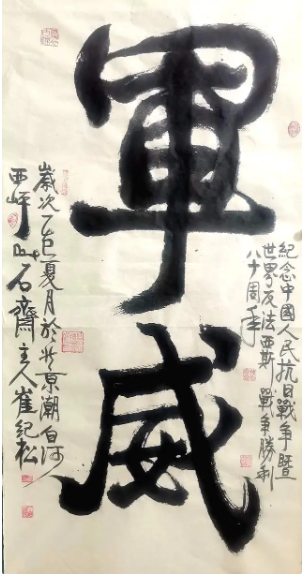 紀念中國人民抗日戰爭暨
世界反法西斯戰爭勝利
八十周年
軍威
歲次乙巳夏月於北京潮白河
西岸石齋主人崔紀松